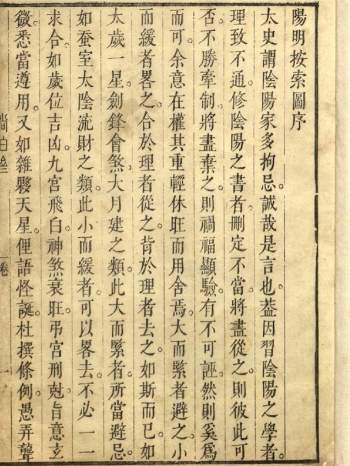 陽明按索圖序
太史謂陰陽家多拘忌誠哉是言也蓋因習陰陽之學者
理致不通修陰陽之書者刪定不當將盡從之則彼此可
否不勝牽制將盡棄之則禍福顯驗有不可誣然則奚爲
而可余意在權其重輕休旺而用舍焉大而緊者避之小
而緩者畧之合於理者從之背於理者去之如斯而已如
太歲一星劍鋒會煞大月建之類此大而緊者所當避忌
如蚕室太陰流財之類此小而緩者可以畧去不必一一
求合如歲位吉凶九宫飛白神煞衰旺弔宫刑尅旨意玄
微悉當遵用又如雜駁天星俚語怪誕杜撰條例愚弄聾
卷